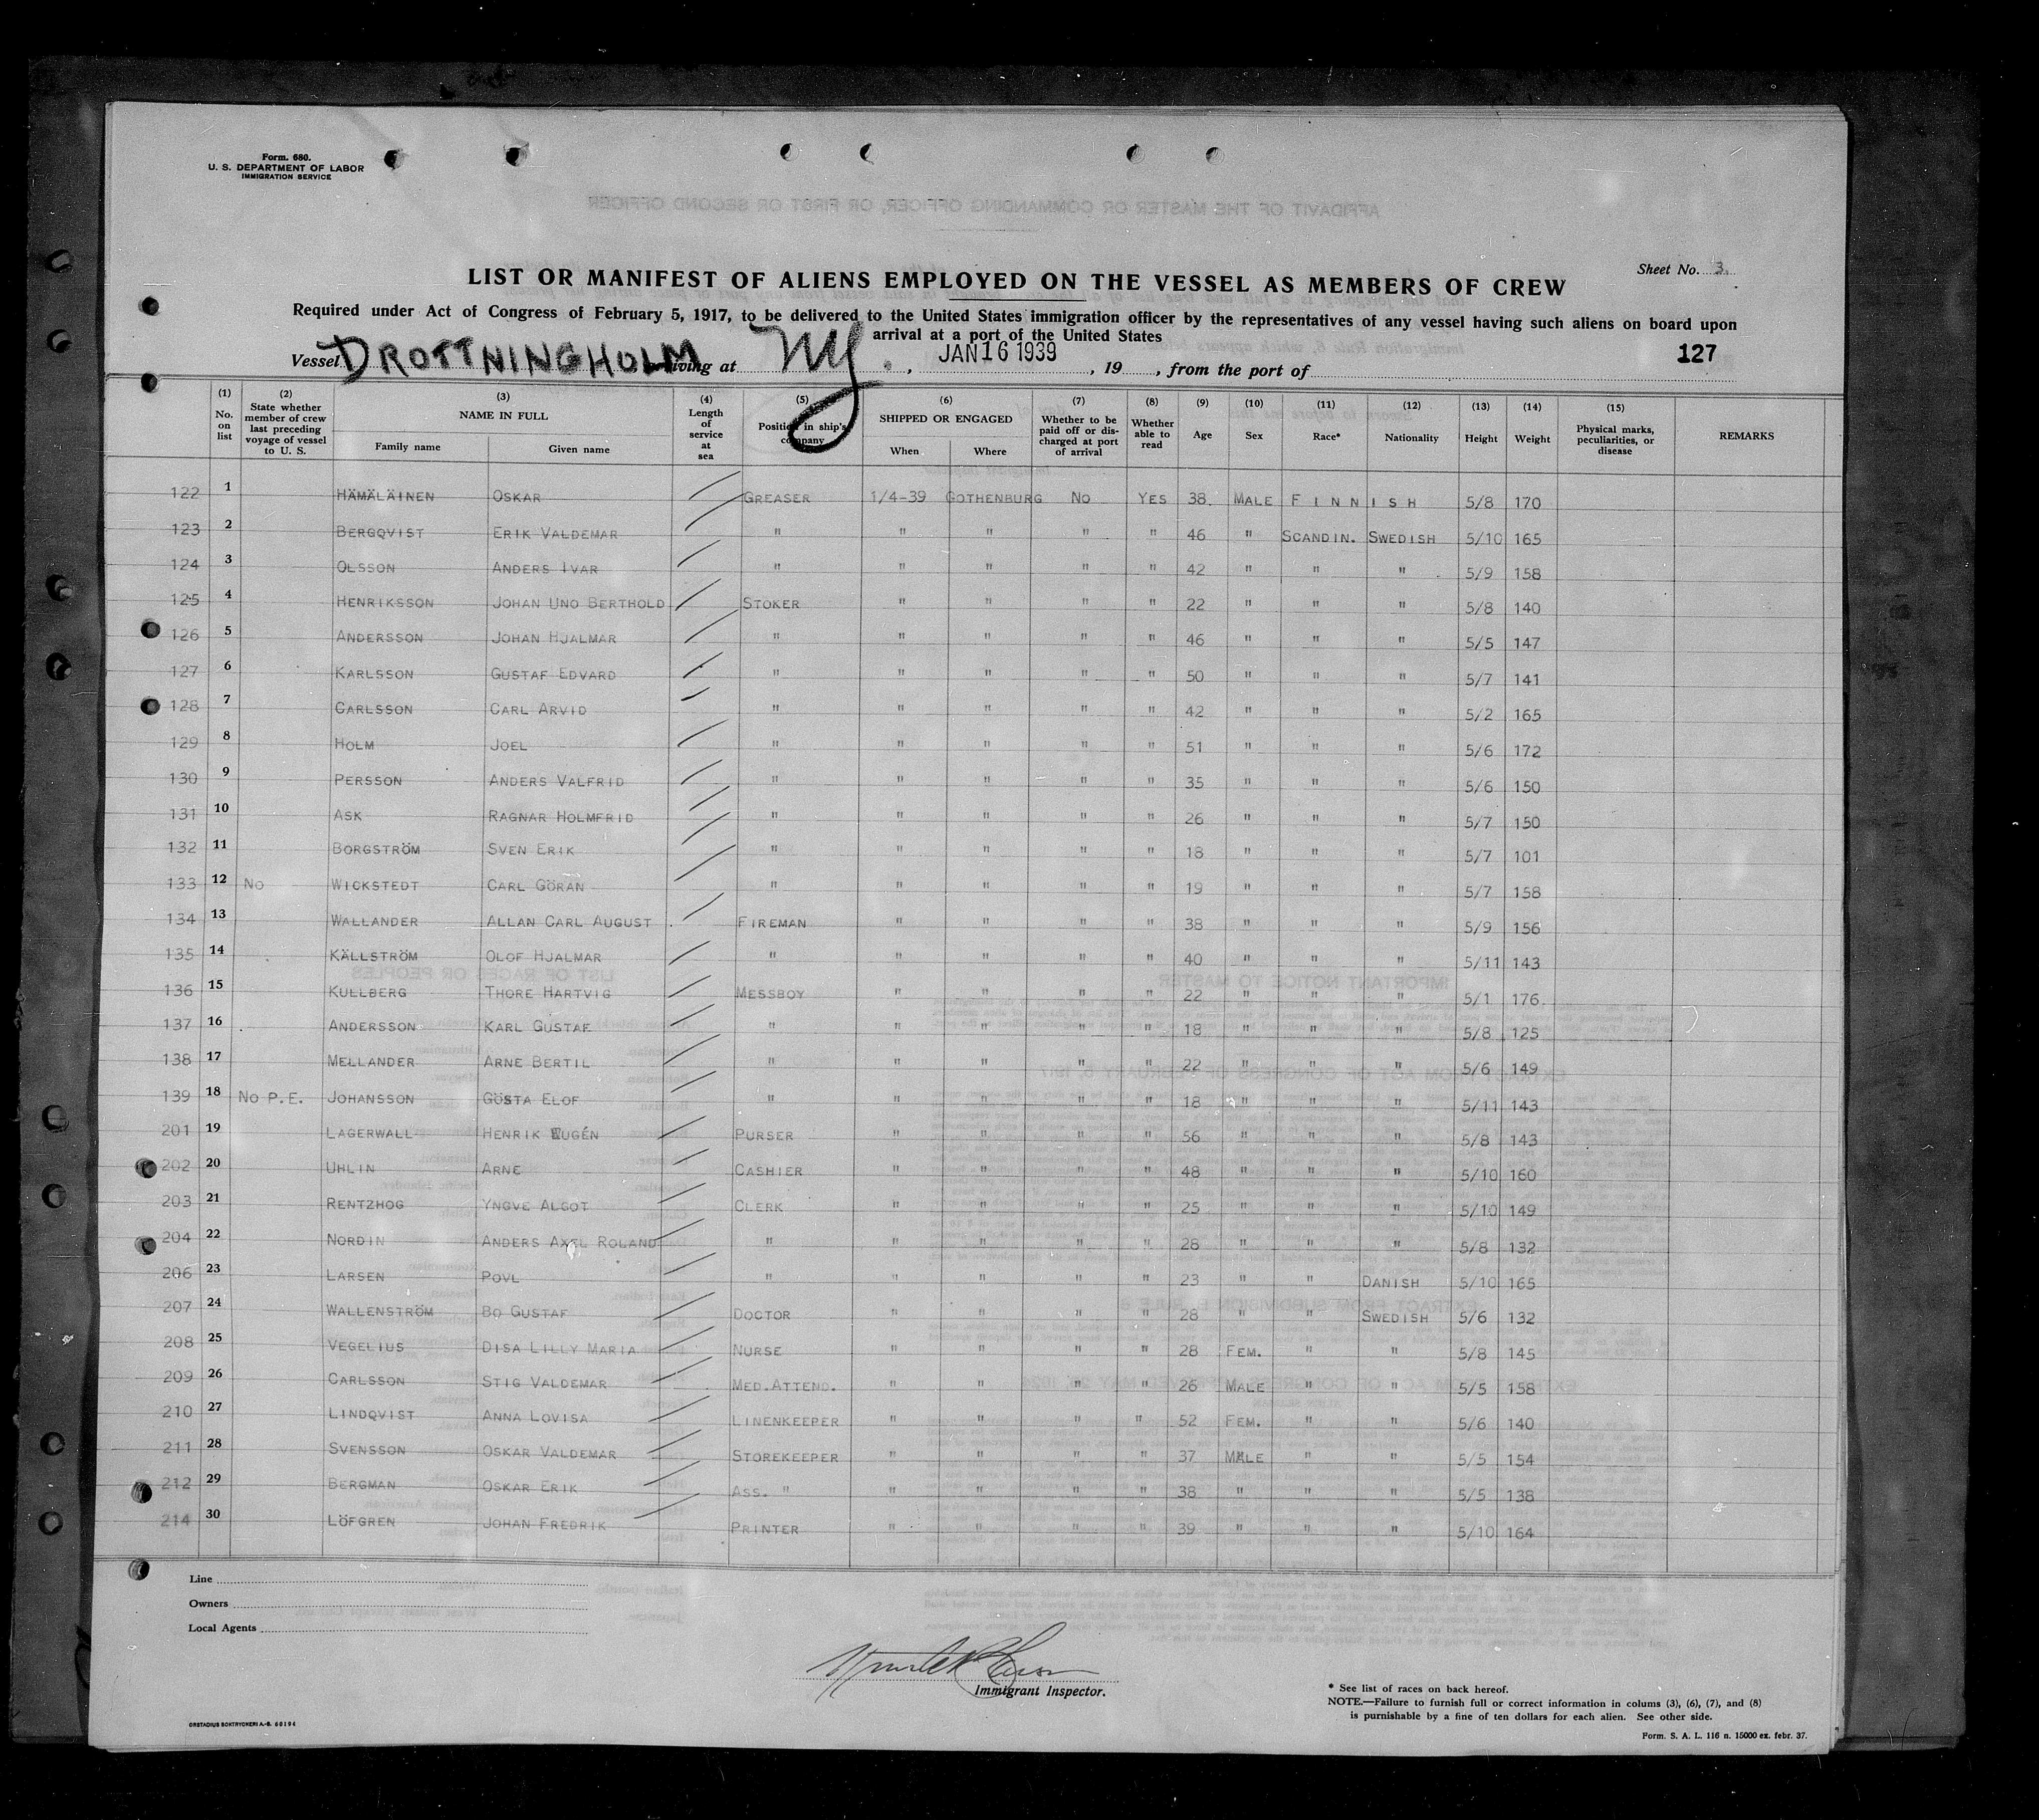 Form. 680.
U. S. DEPARTMENT OF LABOR
IMMIGRATION SERVICE
Sheet No. 3.
LIST OR MANIFEST OF ALIENS EMPLOYED ON THE VESSEL AS MEMBERS OF CREW
Required under Act of Congress of February 5, 1917, to be delivered to the United States immigration officer by the representatives of any vessel having such aliens on board upon
arrival at a port of the United States
127
Vessel DROTTNINGHOLM arriving at NY. , JAN 16 1939 , 19 , from the port of
(1) No. on list (2) State whether member of crew last preceding voyage of vessel to U. S. (3) NAME IN FULL Family name Given name (4) Length of service at sea (5) Position in ship's company (6) SHIPPED OR ENGAGED When Where (7) Whether to be paid off or discharged at port of arrival (8) Whether able to read (9) Age (10) Sex (11) Race* (12) Nationality (13) Height (14) Weight (15) Physical marks, peculiarities, or disease REMARKS
122 1 HÄMÄLÄINEN OSKAR GREASER 1/4-39 GOTHENBURG NO YES 38. MALE FINNISH 5/8 170
123 2 BERGQVIST ERIK VALDEMAR " " " " " 46 " SCANDIN. SWEDISH 5/10 165
124 3 OLSSON ANDERS IVAR " " " " " 42 " " " 5/9 158
125 4 HENRIKSSON JOHAN UNO BERTHOLD STOKER " " " " 22 " " " 5/8 140
126 5 ANDERSSON JOHAN HJALMAR " " " " " 46 " " " 5/5 147
127 6 KARLSSON GUSTAF EDVARD " " " " " 50 " " " 5/7 141
128 7 CARLSSON CARL ARVID " " " " " 42 " " " 5/2 165
129 8 HOLM JOEL " " " " " 51 " " " 5/6 172
130 9 PERSSON ANDERS VALFRID " " " " " 35 " " " 5/6 150
131 10 ASK RAGNAR HOLMFRID " " " " " 26 " " " 5/7 150
132 11 BORGSTRÖM SVEN ERIK " " " " " 18 " " " 5/7 101
133 12 NO WICKSTEDT CARL GÖRAN " " " " " 19 " " " 5/7 158
134 13 WALLANDER ALLAN CARL AUGUST FIREMAN " " " " 38 " " " 5/9 156
135 14 KÄLLSTRÖM OLOF HJALMAR " " " " " 40 " " " 5/11 143
136 15 KULLBERG THORE HARTVIG MESSBOY " " " " 22 " " " 5/1 176.
137 16 ANDERSSON KARL GUSTAF " " " " " 18 " " " 5/8 125
138 17 MELLANDER ARNE BERTIL " " " " " 22 " " " 5/6 149
139 18 NO P.E. JOHANSSON GÖSTA ELOF " " " " " 18 " " " 5/11 143
201 19 LAGERWALL HENRIK EUGÉN PURSER " " " " 56 " " " 5/8 143
202 20 UHLIN ARNE CASHIER " " " " 48 " " " 5/10 160
203 21 RENTZHOG YNGVE ALGOT CLERK " " " " 25 " " " 5/10 149
204 22 NORDIN ANDERS AXEL ROLAND " " " " " 28 " " " 5/8 132
206 23 LARSEN POVL " " " " " 23 " " DANISH 5/10 165
207 24 WALLENSTRÖM BO GUSTAF DOCTOR " " " " 28 " " SWEDISH 5/6 132
208 25 VEGELIUS DISA LILLY MARIA NURSE " " " " 28 FEM. " " 5/8 145
209 26 CARLSSON STIG VALDEMAR MED.ATTEND. " " " " 26 MALE " " 5/5 158
210 27 LINDQVIST ANNA LOVISA LINENKEEPER " " " " 52 FEM. " " 5/6 140
211 28 SVENSSON OSKAR VALDEMAR STOREKEEPER " " " " 37 MALE " " 5/5 154
212 29 BERGMAN OSKAR ERIK ASS. " " " " " 38 " " " 5/5 138
214 30 LÖFGREN JOHAN FREDRIK PRINTER " " " " 39 " " " 5/10 164
Line
Owners
Local Agents
Immigrant Inspector.
* See list of races on back hereof.
NOTE.—Failure to furnish full or correct information in colums (3), (6), (7), and (8)
is punishable by a fine of ten dollars for each alien. See other side.
ORSTADIUS BOKTRYCKERI A.-B. 66194
Form. S. A. L. 116 n. 15000 ex. febr. 37.